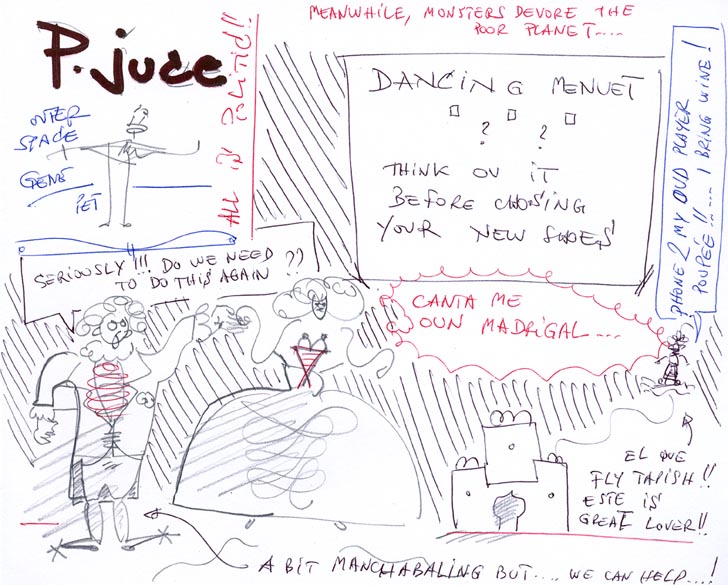 MEANWHILE, MONSTERS DEVORE THE
POOR PLANET....
P. juce
ALL IN
OUTER
SPACE
GENS
PET
DANCING MENUET
? ?
THINK OV IT
BEFORE CHOSING
YOUR NEW SHOES!
PHONE 2 MY OUD PLAYER
POUPÉE!!.... I BRING WINE!
SERIOUSLY!!! DO WE NEED
TO DO THIS AGAIN ??
CANTA ME
OUN MADRIGAL....
EL QUE
FLY TAPISH!!
ESTE IS
GREAT LOVER!!
A BIT MANCHABALING BUT.... WE CAN HELP....!